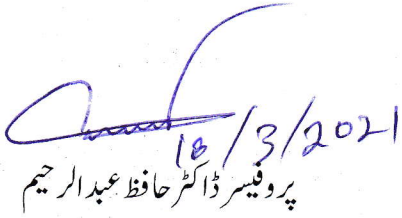 18/3/2021
پروفیسر ڈاکٹر حافظ عبدالرحیم